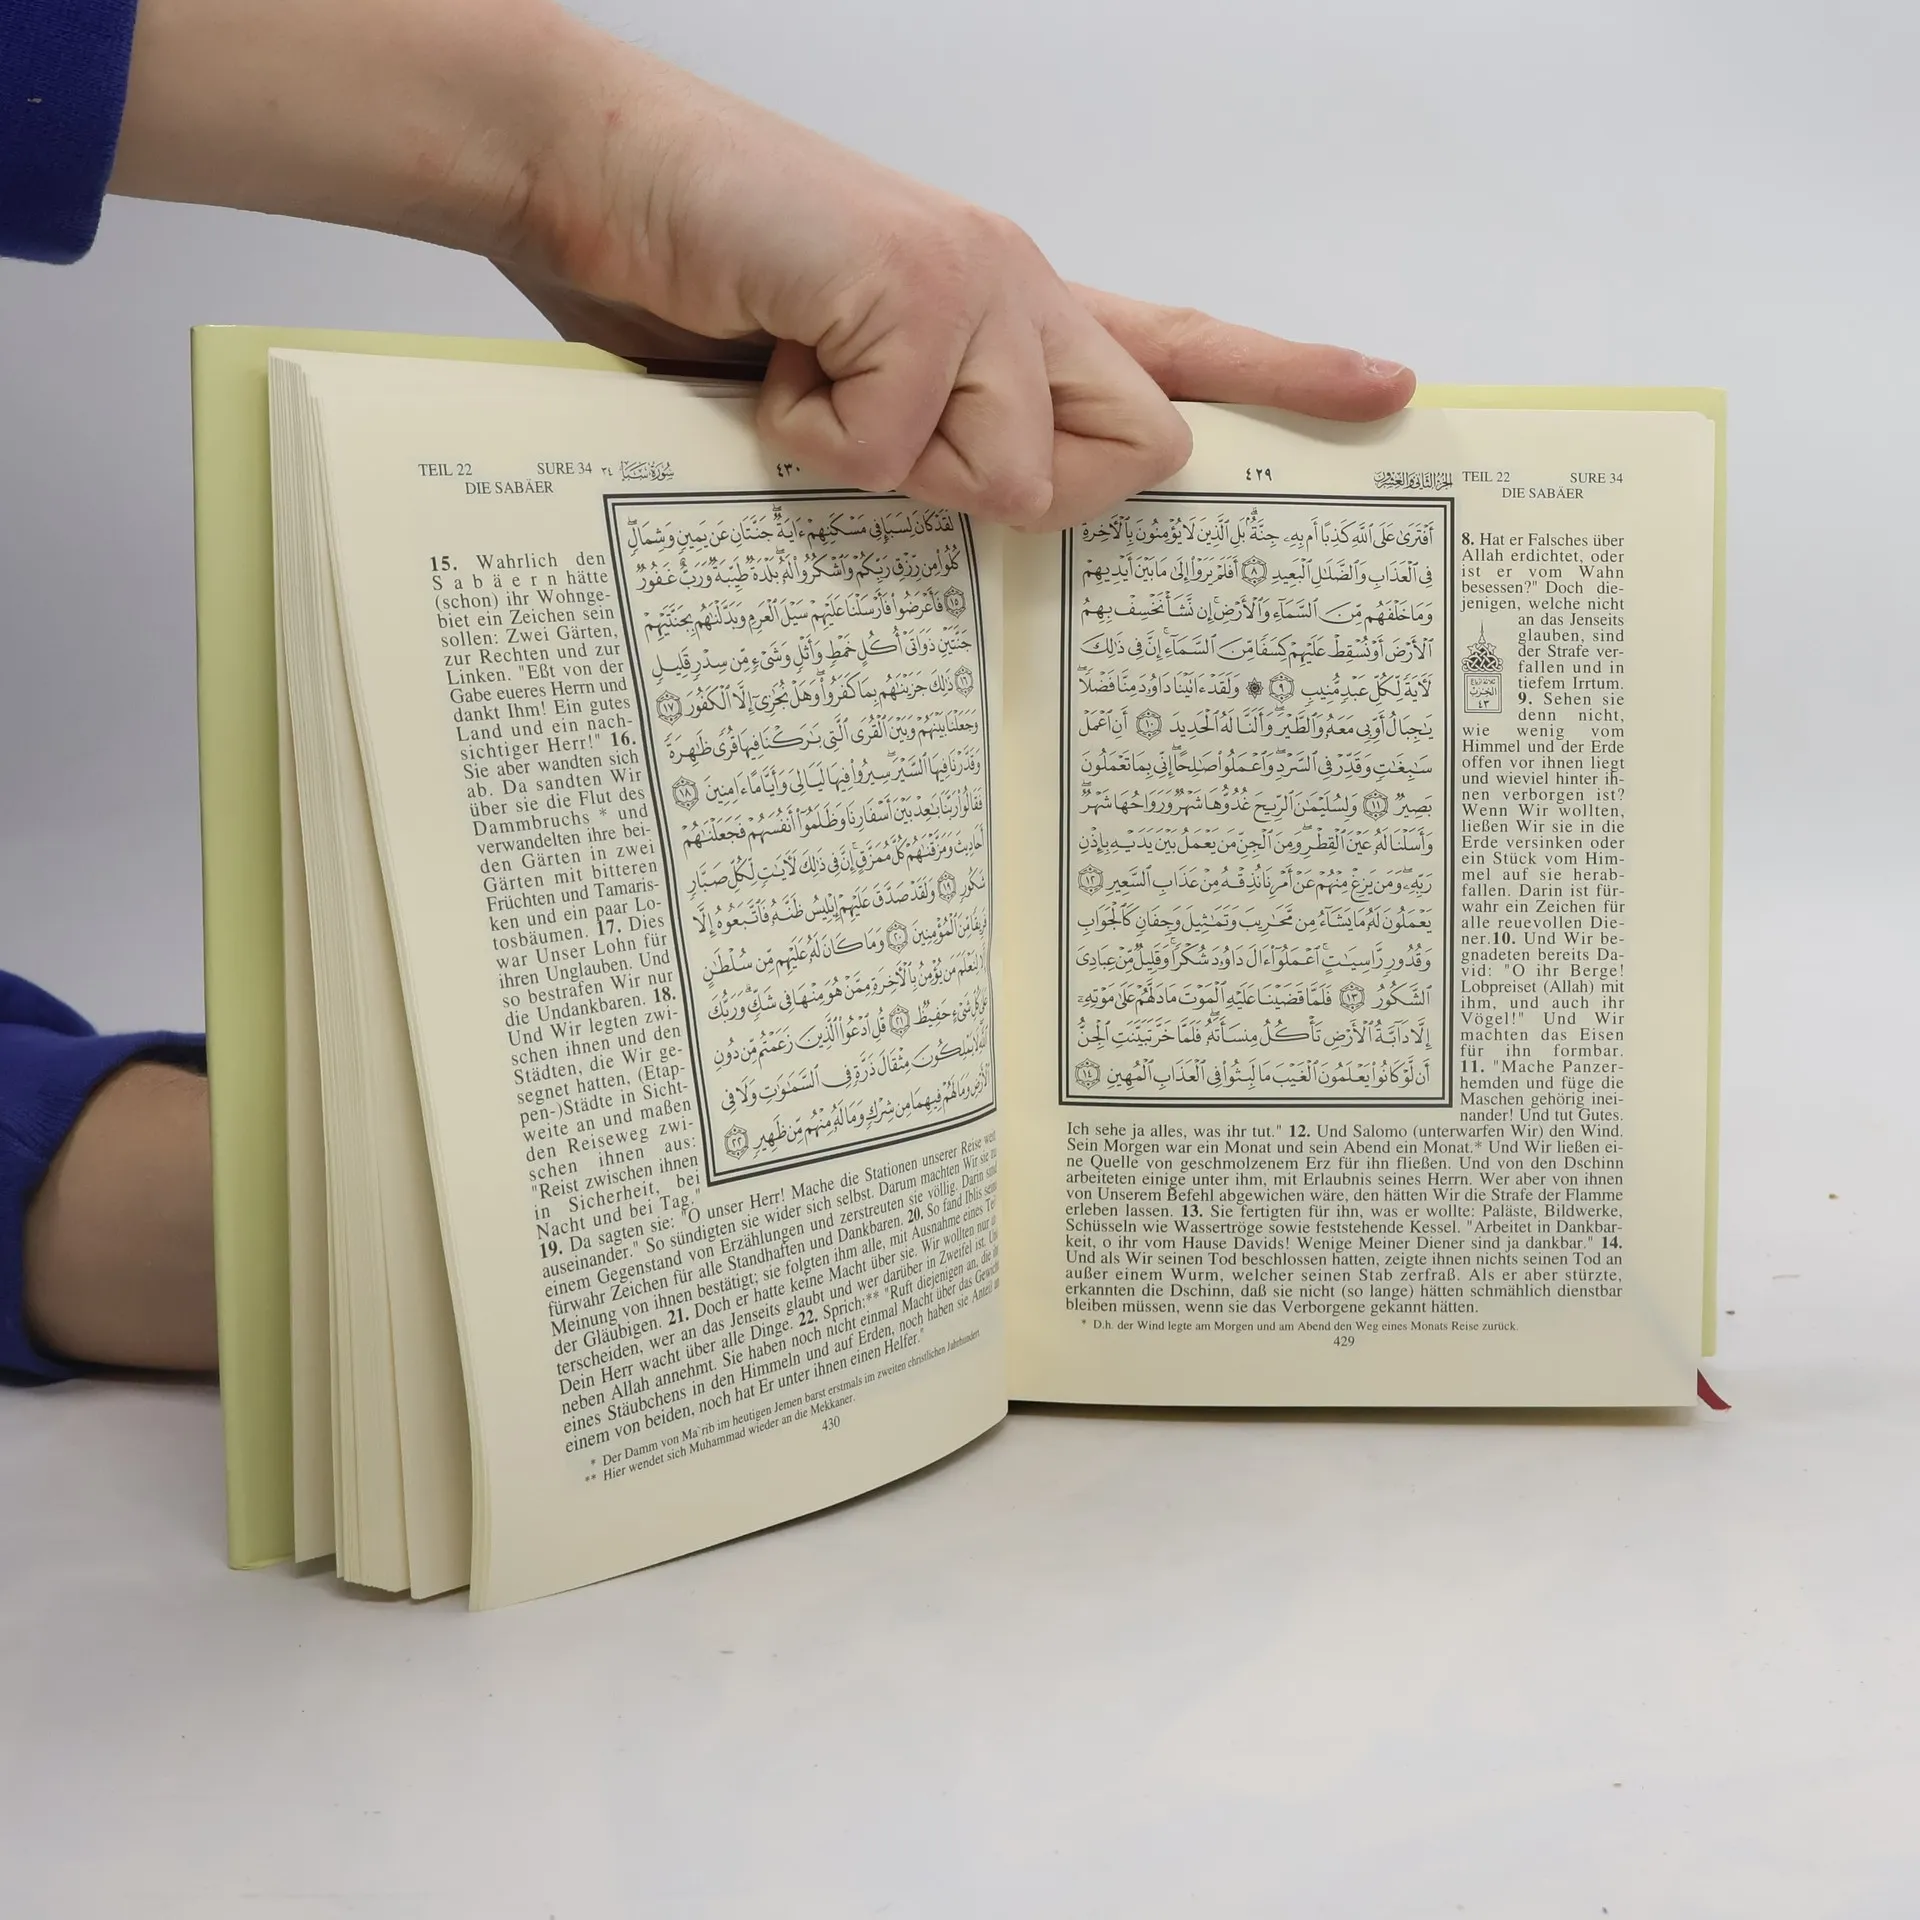 TEIL 22 SURE 34 ٣٤ سُورَةُ سَبَإٍ
DIE SABÄER
٤٣٠
لَقَدْ كَانَ لِسَبَإٍ فِي مَسْكَنِهِمْ ءَايَةٌ جَنَّتَانِ عَن يَمِينٍ وَشِمَالٍ
كُلُوا۟ مِن رِّزْقِ رَبِّكُمْ وَٱشْكُرُوا۟ لَهُۥ بَلْدَةٌ طَيِّبَةٌ وَرَبٌّ غَفُورٌ
١٥ فَأَعْرَضُوا۟ فَأَرْسَلْنَا عَلَيْهِمْ سَيْلَ ٱلْعَرِمِ وَبَدَّلْنَٰهُم بِجَنَّتَيْهِمْ
جَنَّتَيْنِ ذَوَاتَىْ أُكُلٍ خَمْطٍ وَأَثْلٍ وَشَىْءٍ مِّن سِدْرٍ قَلِيلٍ
١٦ ذَٰلِكَ جَزَيْنَٰهُم بِمَا كَفَرُوا۟ وَهَلْ نُجَٰزِىٓ إِلَّا ٱلْكَفُورَ ١٧
وَجَعَلْنَا بَيْنَهُمْ وَبَيْنَ ٱلْقُرَى ٱلَّتِى بَٰرَكْنَا فِيهَا قُرًى ظَٰهِرَةً
وَقَدَّرْنَا فِيهَا ٱلسَّيْرَ سِيرُوا۟ فِيهَا لَيَالِىَ وَأَيَّامًا ءَامِنِينَ ١٨
فَقَالُوا۟ رَبَّنَا بَٰعِدْ بَيْنَ أَسْفَارِنَا وَظَلَمُوٓا۟ أَنفُسَهُمْ فَجَعَلْنَٰهُمْ
أَحَادِيثَ وَمَزَّقْنَٰهُمْ كُلَّ مُمَزَّقٍ إِنَّ فِى ذَٰلِكَ لَءَايَٰتٍ لِّكُلِّ صَبَّارٍ
شَكُورٍ ١٩ وَلَقَدْ صَدَّقَ عَلَيْهِمْ إِبْلِيسُ ظَنَّهُۥ فَٱتَّبَعُوهُ إِلَّا
فَرِيقًا مِّنَ ٱلْمُؤْمِنِينَ ٢٠ وَمَا كَانَ لَهُۥ عَلَيْهِم مِّن سُلْطَٰنٍ
إِلَّا لِنَعْلَمَ مَن يُؤْمِنُ بِٱلْءَاخِرَةِ مِمَّنْ هُوَ مِنْهَا فِى شَكٍّ وَرَبُّكَ
عَلَىٰ كُلِّ شَىْءٍ حَفِيظٌ ٢١ قُلِ ٱدْعُوا۟ ٱلَّذِينَ زَعَمْتُم مِّن دُونِ
ٱللَّهِ لَا يَمْلِكُونَ مِثْقَالَ ذَرَّةٍ فِى ٱلسَّمَٰوَٰتِ وَلَا فِى
ٱلْأَرْضِ وَمَا لَهُمْ فِيهِمَا مِن شِرْكٍ وَمَا لَهُۥ مِنْهُم مِّن ظَهِيرٍ ٢٢
15. Wahrlich den
Sabäern hätte
(schon) ihr Wohnge-
biet ein Zeichen sein
sollen: Zwei Gärten,
zur Rechten und zur
Linken. "Eßt von der
Gabe eueres Herrn und
dankt Ihm! Ein gutes
Land und ein nach-
sichtiger Herr!" 16.
Sie aber wandten sich
ab. Da sandten Wir
über sie die Flut des
Dammbruchs * und
verwandelten ihre bei-
den Gärten in zwei
Gärten mit bitteren
Früchten und Tamaris-
ken und ein paar Lo-
tosbäumen. 17. Dies
war Unser Lohn für
ihren Unglauben. Und
so bestrafen Wir nur
die Undankbaren. 18.
Und Wir legten zwi-
schen ihnen und den
Städten, die Wir ge-
segnet hatten, (Etap-
pen-)Städte in Sicht-
weite an und maßen
den Reiseweg zwi-
schen ihnen aus:
"Reist zwischen ihnen
in Sicherheit, bei
Nacht und bei Tag."
19. Da sagten sie: "O unser Herr! Mache die Stationen unserer Reise weit
auseinander." So sündigten sie wider sich selbst. Darum machten Wir sie zu
einem Gegenstand von Erzählungen und zerstreuten sie völlig. Darin sind
fürwahr Zeichen für alle Standhaften und Dankbaren. 20. So fand Iblis seine
Meinung von ihnen bestätigt; sie folgten ihm alle, mit Ausnahme eines Teils
der Gläubigen. 21. Doch er hatte keine Macht über sie. Wir wollten nur
terscheiden, wer an das Jenseits glaubt und wer darüber in Zweifel ist. Und
Dein Herr wacht über alle Dinge. 22. Sprich:** "Ruft diejenigen an, die ihr
neben Allah annehmt. Sie haben noch nicht einmal Macht über das Gewicht
eines Stäubchens in den Himmeln und auf Erden, noch haben sie Anteil an
einem von beiden, noch hat Er unter ihnen einen Helfer."
* Der Damm von Ma'rib im heutigen Jemen barst erstmals im zweiten christlichen Jahrhundert
** Hier wendet sich Muhammad wieder an die Mekkaner.
430
٤٢٩ الجزء الثاني والعشرون TEIL 22 SURE 34
DIE SABÄER
أَفْتَرَىٰ عَلَى ٱللَّهِ كَذِبًا أَم بِهِۦ جِنَّةٌۢ بَلِ ٱلَّذِينَ لَا يُؤْمِنُونَ بِٱلْءَاخِرَةِ
فِى ٱلْعَذَابِ وَٱلضَّلَٰلِ ٱلْبَعِيدِ ٨ أَفَلَمْ يَرَوْا۟ إِلَىٰ مَا بَيْنَ أَيْدِيهِمْ
وَمَا خَلْفَهُم مِّنَ ٱلسَّمَآءِ وَٱلْأَرْضِ إِن نَّشَأْ نَخْسِفْ بِهِمُ
ٱلْأَرْضَ أَوْ نُسْقِطْ عَلَيْهِمْ كِسَفًا مِّنَ ٱلسَّمَآءِ إِنَّ فِى ذَٰلِكَ
لَءَايَةً لِّكُلِّ عَبْدٍ مُّنِيبٍ ٩ ۞ وَلَقَدْ ءَاتَيْنَا دَاوُۥدَ مِنَّا فَضْلًا
يَٰجِبَالُ أَوِّبِى مَعَهُۥ وَٱلطَّيْرَ وَأَلَنَّا لَهُ ٱلْحَدِيدَ ١٠ أَنِ ٱعْمَلْ
سَٰبِغَٰتٍ وَقَدِّرْ فِى ٱلسَّرْدِ وَٱعْمَلُوا۟ صَٰلِحًا إِنِّى بِمَا تَعْمَلُونَ
بَصِيرٌ ١١ وَلِسُلَيْمَٰنَ ٱلرِّيحَ غُدُوُّهَا شَهْرٌ وَرَوَاحُهَا شَهْرٌ
وَأَسَلْنَا لَهُۥ عَيْنَ ٱلْقِطْرِ وَمِنَ ٱلْجِنِّ مَن يَعْمَلُ بَيْنَ يَدَيْهِ بِإِذْنِ
رَبِّهِۦ وَمَن يَزِغْ مِنْهُمْ عَنْ أَمْرِنَا نُذِقْهُ مِنْ عَذَابِ ٱلسَّعِيرِ ١٢
يَعْمَلُونَ لَهُۥ مَا يَشَآءُ مِن مَّحَٰرِيبَ وَتَمَٰثِيلَ وَجِفَانٍ كَٱلْجَوَابِ
وَقُدُورٍ رَّاسِيَٰتٍ ٱعْمَلُوٓا۟ ءَالَ دَاوُۥدَ شُكْرًا وَقَلِيلٌ مِّنْ عِبَادِىَ
ٱلشَّكُورُ ١٣ فَلَمَّا قَضَيْنَا عَلَيْهِ ٱلْمَوْتَ مَا دَلَّهُمْ عَلَىٰ مَوْتِهِۦٓ
إِلَّا دَآبَّةُ ٱلْأَرْضِ تَأْكُلُ مِنسَأَتَهُۥ فَلَمَّا خَرَّ تَبَيَّنَتِ ٱلْجِنُّ
أَن لَّوْ كَانُوا۟ يَعْلَمُونَ ٱلْغَيْبَ مَا لَبِثُوا۟ فِى ٱلْعَذَابِ ٱلْمُهِينِ ١٤
8. Hat er Falsches über
Allah erdichtet, oder
ist er vom Wahn
besessen?" Doch die-
jenigen, welche nicht
an das Jenseits
glauben, sind
der Strafe ver-
fallen und in
tiefem Irrtum.
9. Sehen sie
denn nicht,
wie wenig vom
Himmel und der Erde
offen vor ihnen liegt
und wieviel hinter ih-
nen verborgen ist?
Wenn Wir wollten,
ließen Wir sie in die
Erde versinken oder
ein Stück vom Him-
mel auf sie herab-
fallen. Darin ist für-
wahr ein Zeichen für
alle reuevollen Die-
ner.10. Und Wir be-
gnadeten bereits Da-
vid: "O ihr Berge!
Lobpreiset (Allah) mit
ihm, und auch ihr
Vögel!" Und Wir
machten das Eisen
für ihn formbar.
11. "Mache Panzer-
hemden und füge die
Maschen gehörig inei-
nander! Und tut Gutes.
الحزب
٤٣
Ich sehe ja alles, was ihr tut." 12. Und Salomo (unterwarfen Wir) den Wind.
Sein Morgen war ein Monat und sein Abend ein Monat.* Und Wir ließen ei-
ne Quelle von geschmolzenem Erz für ihn fließen. Und von den Dschinn
arbeiteten einige unter ihm, mit Erlaubnis seines Herrn. Wer aber von ihnen
von Unserem Befehl abgewichen wäre, den hätten Wir die Strafe der Flamme
erleben lassen. 13. Sie fertigten für ihn, was er wollte: Paläste, Bildwerke,
Schüsseln wie Wassertröge sowie feststehende Kessel. "Arbeitet in Dankbar-
keit, o ihr vom Hause Davids! Wenige Meiner Diener sind ja dankbar." 14.
Und als Wir seinen Tod beschlossen hatten, zeigte ihnen nichts seinen Tod an
außer einem Wurm, welcher seinen Stab zerfraß. Als er aber stürzte,
erkannten die Dschinn, daß sie nicht (so lange) hätten schmählich dienstbar
bleiben müssen, wenn sie das Verborgene gekannt hätten.
* D.h. der Wind legte am Morgen und am Abend den Weg eines Monats Reise zurück.
429